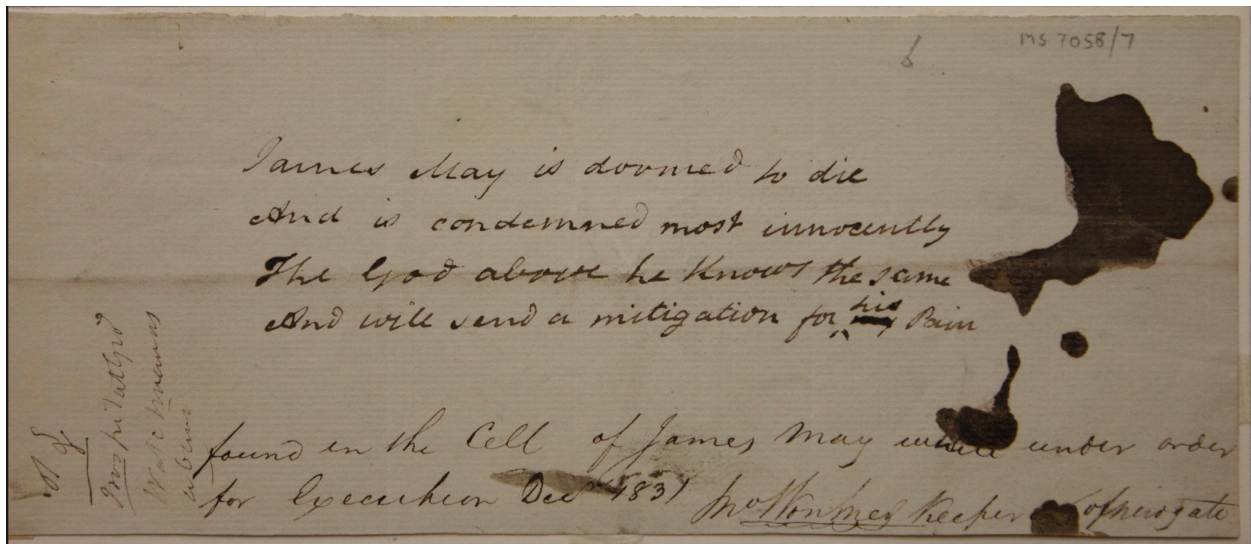 MS 7058/7
James May is doomed to die
And is condemned most innocently
The God above he Knows the same
And will send a mitigation for his Pain
found in the Cell of James May while under order
for Execution Decr 1831 Keeper of Newgate